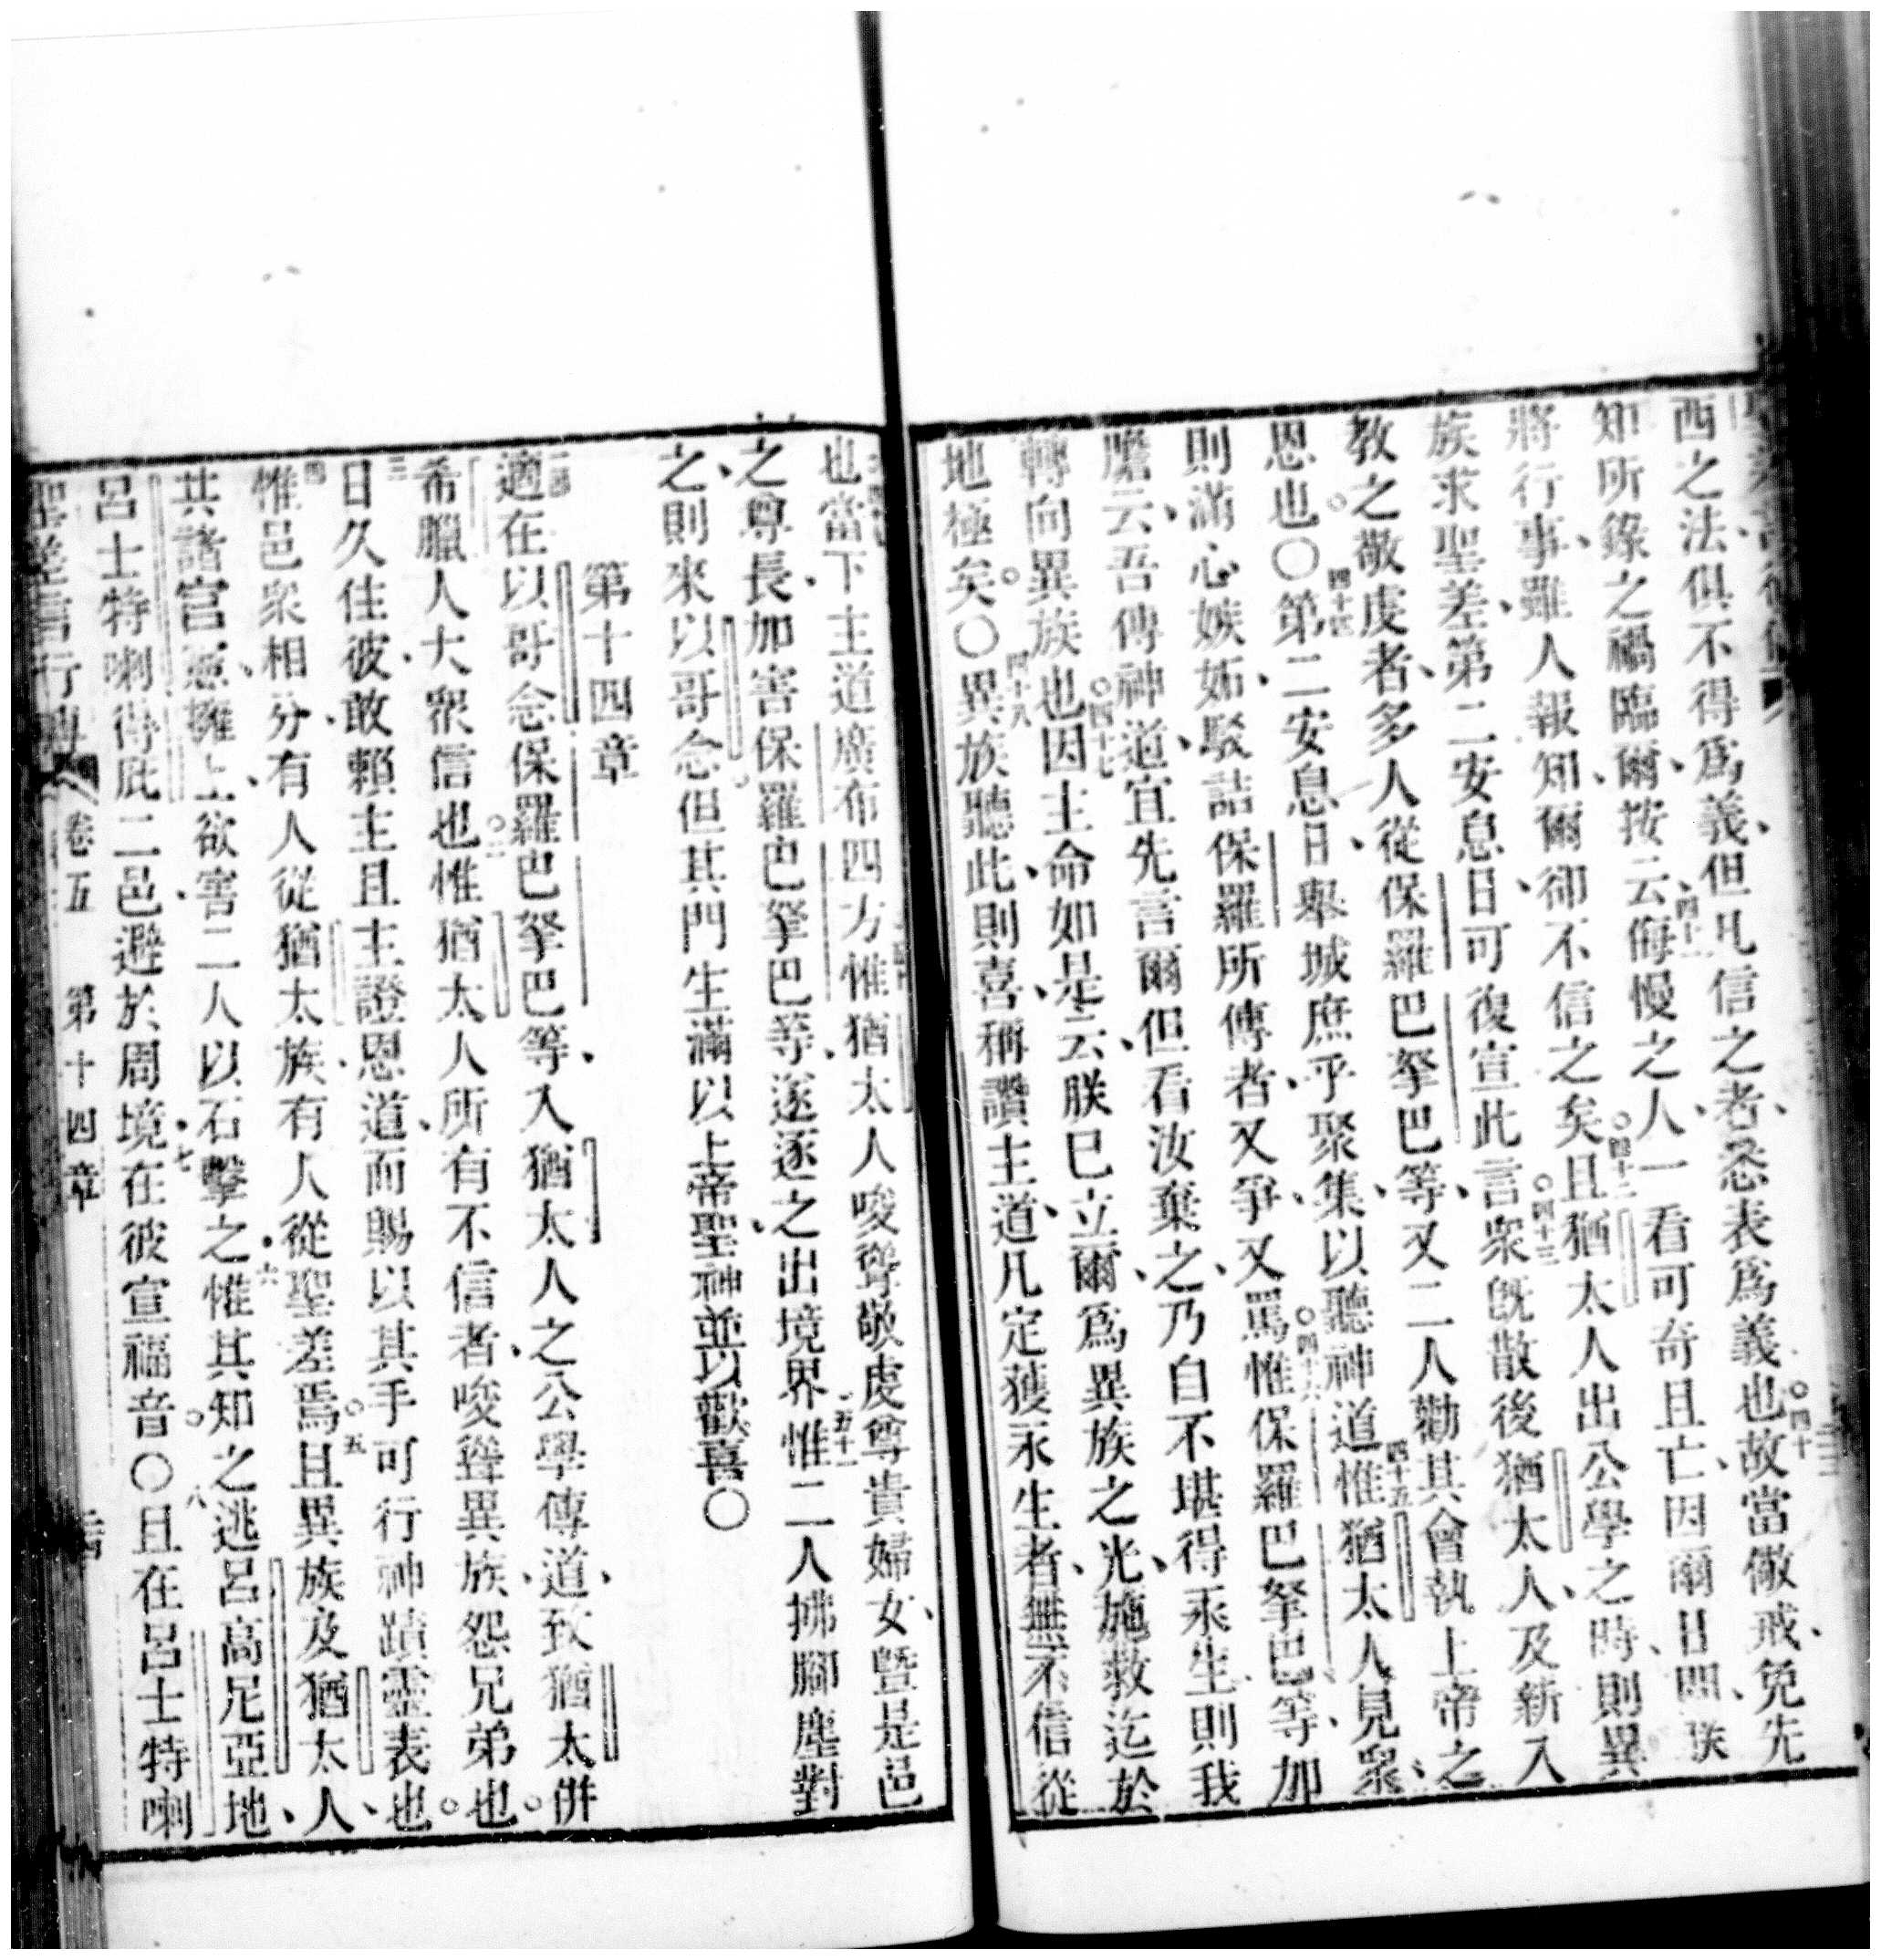 西之法、俱不得爲義、但凡信之者、悉表爲義也。四十故當儆戒、免先
知所錄之禍臨爾、按云、四十一侮慢之人、一看可奇且亡、因爾日間、朕
將行事、雖人報知、爾卻不信之矣。四十二且猶太人出公學之時、則異
族求聖差、第二安息日、可復宣此言。四十三衆旣散後、猶太人、及新入
教之敬虔者、多人從保羅巴拏巴等、又二人勸其會執上帝之
恩也。○四十四第二安息日、舉城庶乎聚集、以聽神道。四十五惟猶太人見衆、
則滿心嫉妬、駁詰保羅所傳者、又爭、又罵。四十六惟保羅巴拏巴等、加
膽云、吾傳神道、宜先言爾、但看汝棄之、乃自不堪得永生、則我
轉向異族也。四十七因主命如是云、朕已立爾、爲異族之光、施救迄於
地極矣。○四十八異族聽此、則喜、稱讚主道、凡定獲永生者、無不信從
也。當下主道廣布四方、惟猶太人唆聳敬虔尊貴婦女、曁是邑
之尊長、加害保羅巴拏巴等、遂逐之、出境界。五十一惟二人拂腳塵對
之、則來以哥念、但其門生滿以上帝聖神、並以歡喜。○
第十四章
適在以哥念、保羅巴拏巴等、入猶太人之公學傳道、致猶太併
希臘人大衆信也。二惟猶太人所有不信者、唆聳異族、怨兄弟也。
三日久住彼、敢賴主、且主證恩道、而賜以其手可行神蹟靈表也。
四惟邑衆相分、有人從猶太族、有人從聖差焉。五且異族及猶太人、
共諸官憲擁上、欲害二人、以石擊之。六惟其知之、逃呂高尼亞地、
呂士特喇得庇二邑、避於周境。七在彼宣福音。○八且在呂士特喇
聖差言行傳 卷五 第十四章